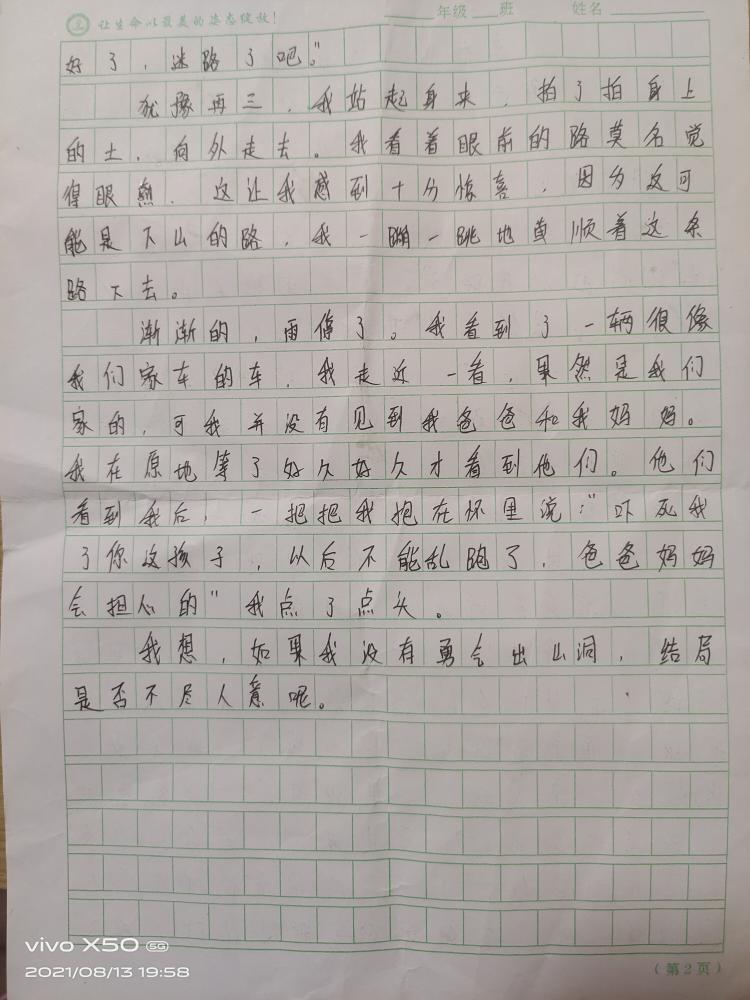 让生命以最美的姿态绽放！ ______年级 ___班 姓名__________
好了，迷路了吧。"
犹豫再三，我站起身来，拍了拍身上
的土，向外走去。我看着眼前的路莫名觉
得眼熟，这让我感到十分惊喜，因为这可
能是下山的路，我一蹦一跳地直顺着这条
路下去。
渐渐的，雨停了。我看到了一辆很像
我们家车的车，我走近一看，果然是我们
家的，可我并没有见到我爸爸和我妈妈。
我在原地等了好久好久才看到他们。他们
看到我后，一把把我抱在怀里说："吓死我
了你这孩子，以后不能乱跑了，爸爸妈妈
会担心的"我点了点头。
我想，如果我没有勇气出山洞，结局
是否不尽人意呢。
vivo X50 5G
2021/08/13 19:58
（第2页）